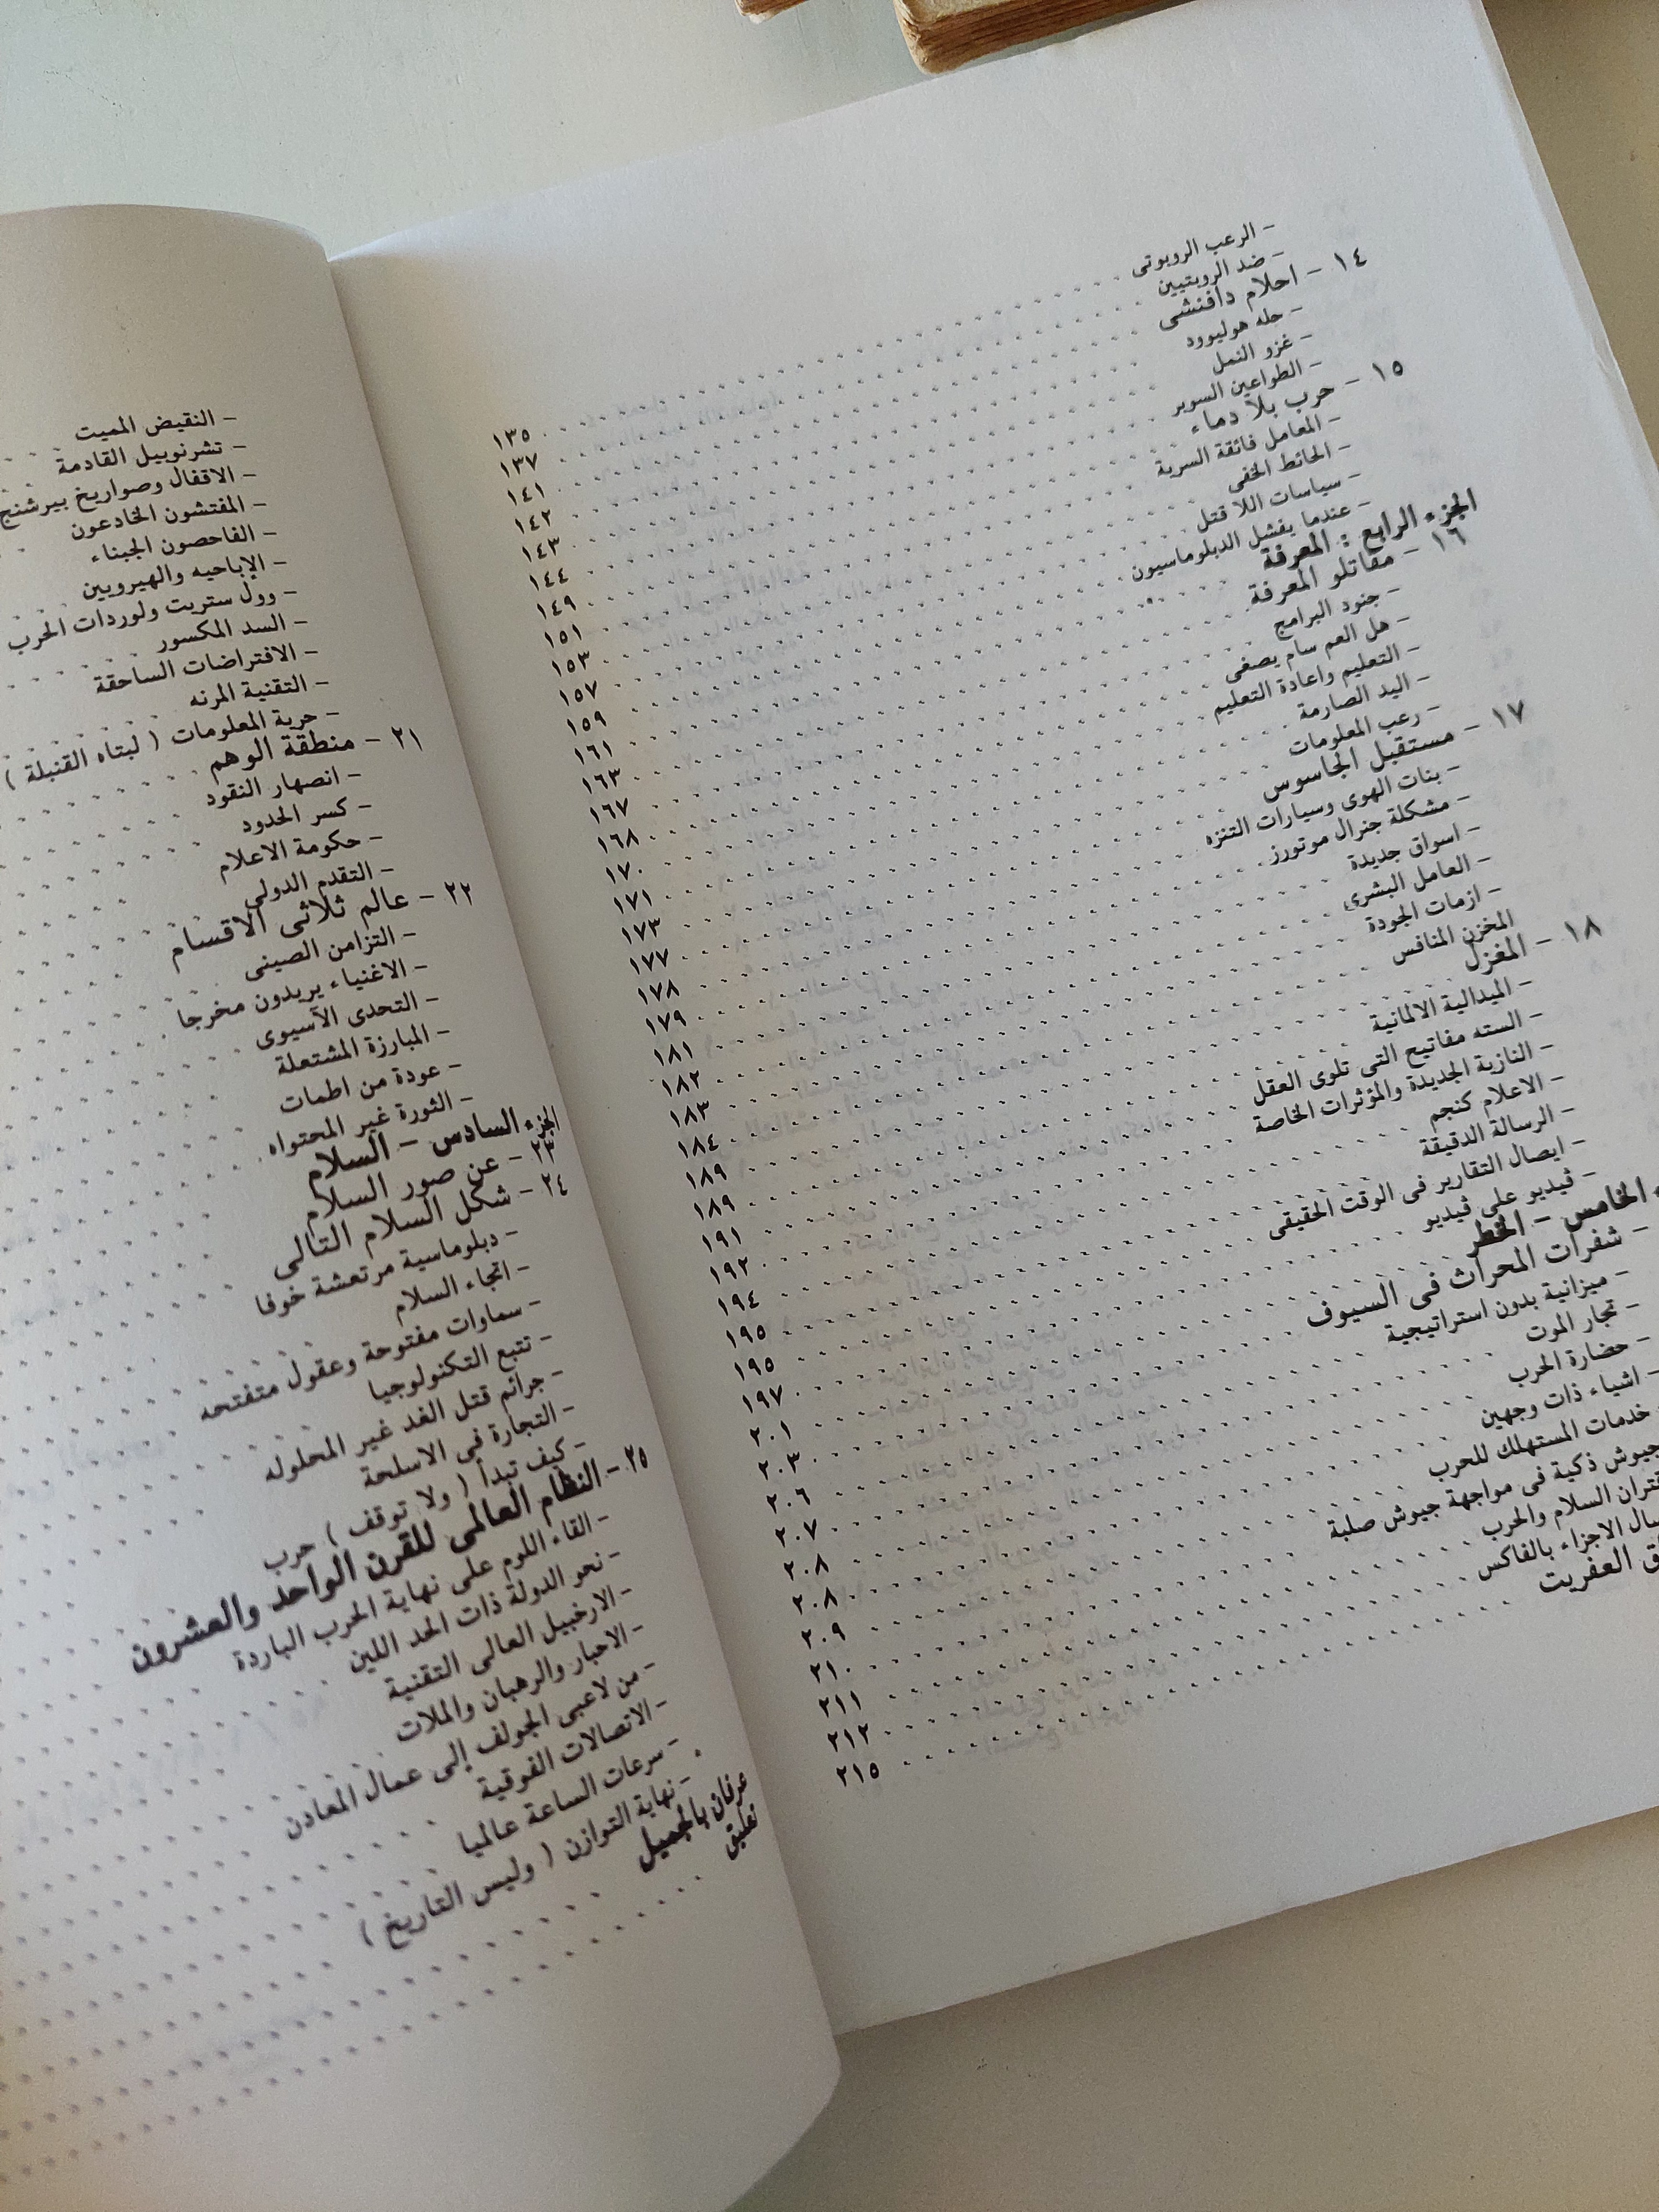 - الرعب الروبوتى ١٣٥
- ضد الروبتيين ١٣٧
١٤ - احلام دافنشى ١٤١
- حله هوليوود ١٤٢
- غزو النمل ١٤٣
- الطواعين السوبر ١٤٤
١٥ - حرب بلا دماء ١٤٩
- المعامل فائقة السرية ١٥١
- الحائط الخفى ١٥٣
- سياسات اللا قتل ١٥٧
- عندما يفشل الدبلوماسيون ١٥٩
الجزء الرابع : المعرفة ١٦١
١٦ - مقاتلو المعرفة ١٦٣
- جنود البرامج ١٦٧
- هل العم سام يصغى ١٦٨
- التعليم واعادة التعليم ١٧٠
- اليد الصارمة ١٧١
- رعب المعلومات ١٧٣
١٧ - مستقبل الجاسوس ١٧٧
- بنات الهوى وسيارات التنزه ١٧٨
- مشكلة جنرال موتورز ١٧٩
- اسواق جديدة ١٨١
- العامل البشرى ١٨٢
- ازمات الجودة ١٨٣
المخزن المنافس ١٨٤
١٨ - المغزل ١٨٩
- الميدالية الالمانية ١٨٩
- السته مفاتيح التى تلوى العقل ١٩١
- النازية الجديدة والمؤثرات الخاصة ١٩٢
- الاعلام كنجم ١٩٤
- الرسالة الدقيقة ١٩٥
- ايصال التقارير فى الوقت الحقيقى ١٩٥
- ڤيديو على ڤيديو ١٩٧
الخامس - الخطر ٢٠١
- شفرات المحراث فى السيوف ٢٠٣
- ميزانية بدون استراتيجية ٢٠٦
- تجار الموت ٢٠٧
- حضارة الحرب ٢٠٨
- اشياء ذات وجهين ٢٠٨
- خدمات المستهلك للحرب ٢٠٩
جيوش ذكية فى مواجهة جيوش صلبة ٢١٠
السلام والحرب ٢١١
الاجزاء بالفاكس ٢١٢
العفريت ٢١٥
- النقيض المميت
- تشرنوبيل القادمة
- الاقفال وصواريخ بيرشنج
- المفتشون الخادعون
- الفاحصون الجبناء
- الإباحيه والهيرويين
- وول ستريت ولوردات الحرب
- السد المكسور
- الافتراضات الساحقة
- التقنية المرنه
- حرية المعلومات ( لبتاه القنبلة )
٢١ - منطقة الوهم
- انصهار النقود
- كسر الحدود
- حكومة الاعلام
- التقدم الدولى
٢٢ - عالم ثلاثى الاقسام
- التزامن الصينى
- الاغنياء يريدون مخرجا
- التحدى الآسيوى
- المبارزة المشتعلة
- عودة من اطمات
- الثورة غير المحتواه
الجزء السادس - السلام
٢٣ - عن صور السلام
٢٤ - شكل السلام التالى
- دبلوماسية مرتعشة خوفا
- اتجاء السلام
- سماوات مفتوحة وعقول متفتحه
- تتبع التكنولوجيا
- جرائم قتل الغد غير المحلوله
- التجارة فى الاسلحة
- كيف تبدأ ( ولا توقف ) حرب
٢٥ - النظام العالمى للقرن الواحد والعشرون
- القاء اللوم على نهاية الحرب الباردة
- نحو الدولة ذات الحد اللين
- الارخبيل العالى التقنية
- الاحبار والرهبان والملات
- من لاعبى الجولف إلى عمال المعادن
- الاتصالات الفوقية
- سرعات الساعة عالميا
- نهاية التوازن ( وليس التاريخ )
عرفان بالجميل
تعليق